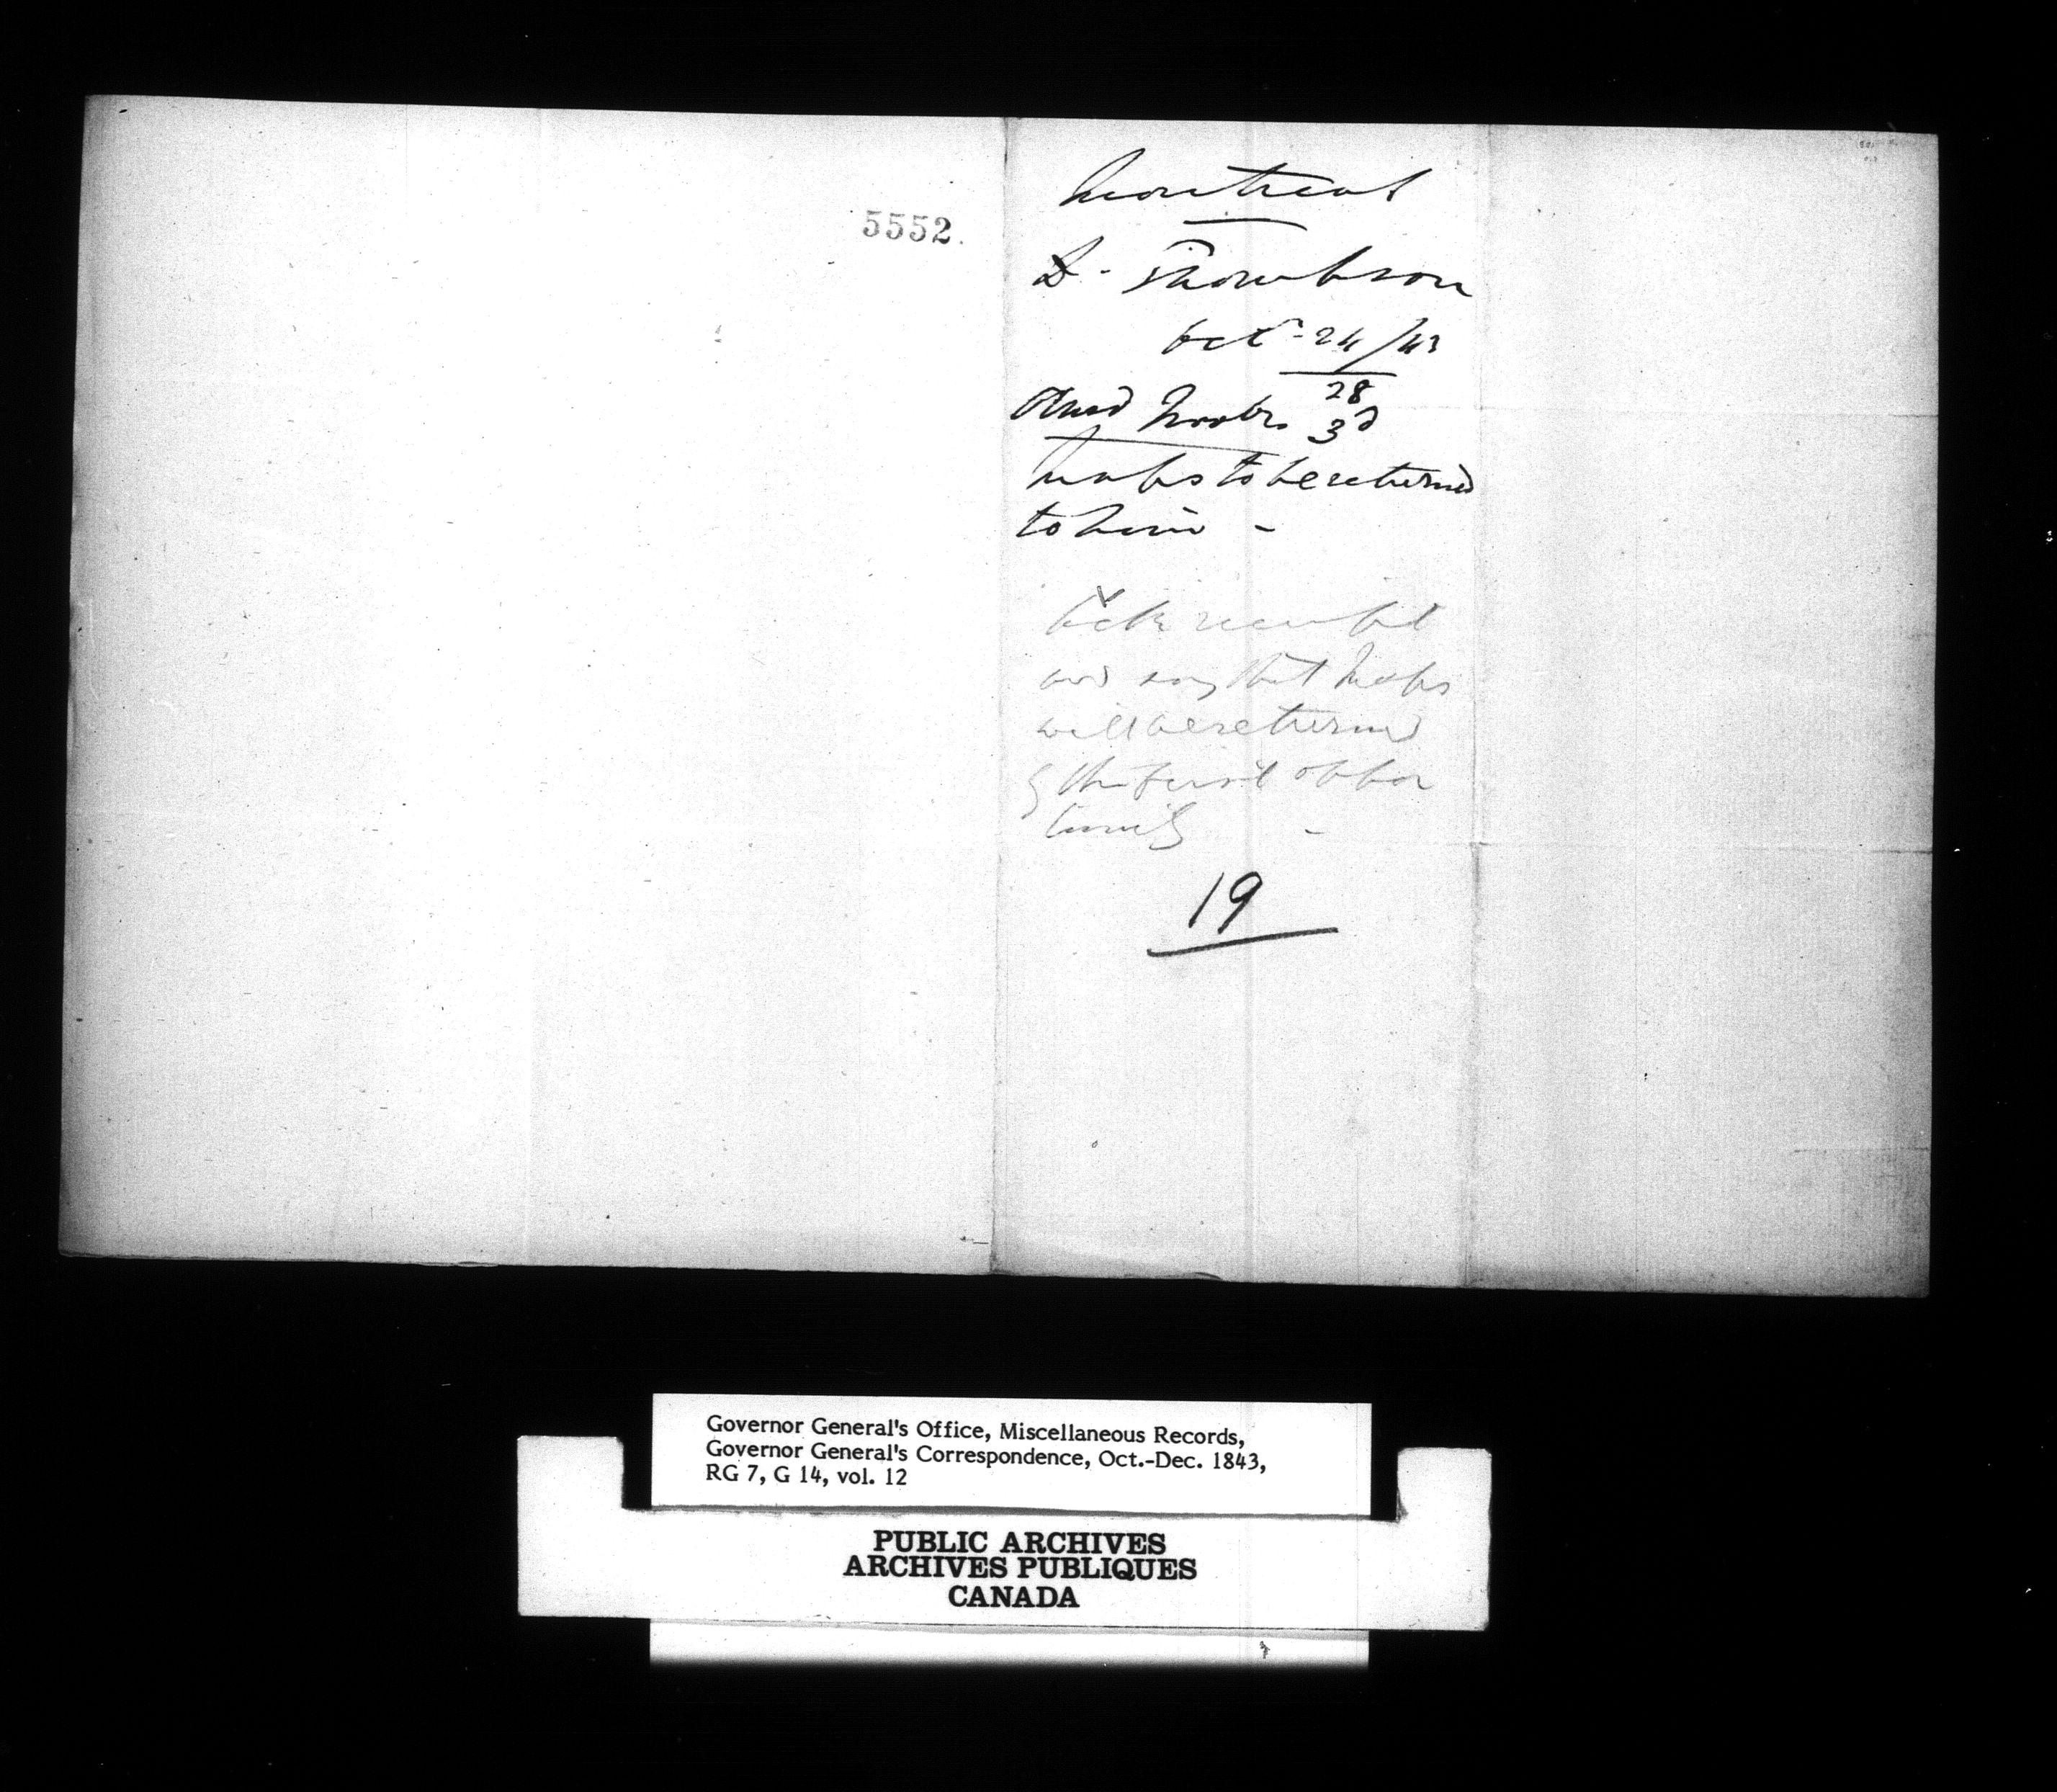 5552.
Montreal
D. Thompson
Oct - 24/43
28
Ansd Novbr 3d
Maps to be returned
to him -
Ack receipt
and say that Maps
will be returned
by the first oppor
tunity -
19
Governor General's Office, Miscellaneous Records,
Governor General's Correspondence, Oct.-Dec. 1843,
RG 7, G 14, vol. 12
PUBLIC ARCHIVES
ARCHIVES PUBLIQUES
CANADA